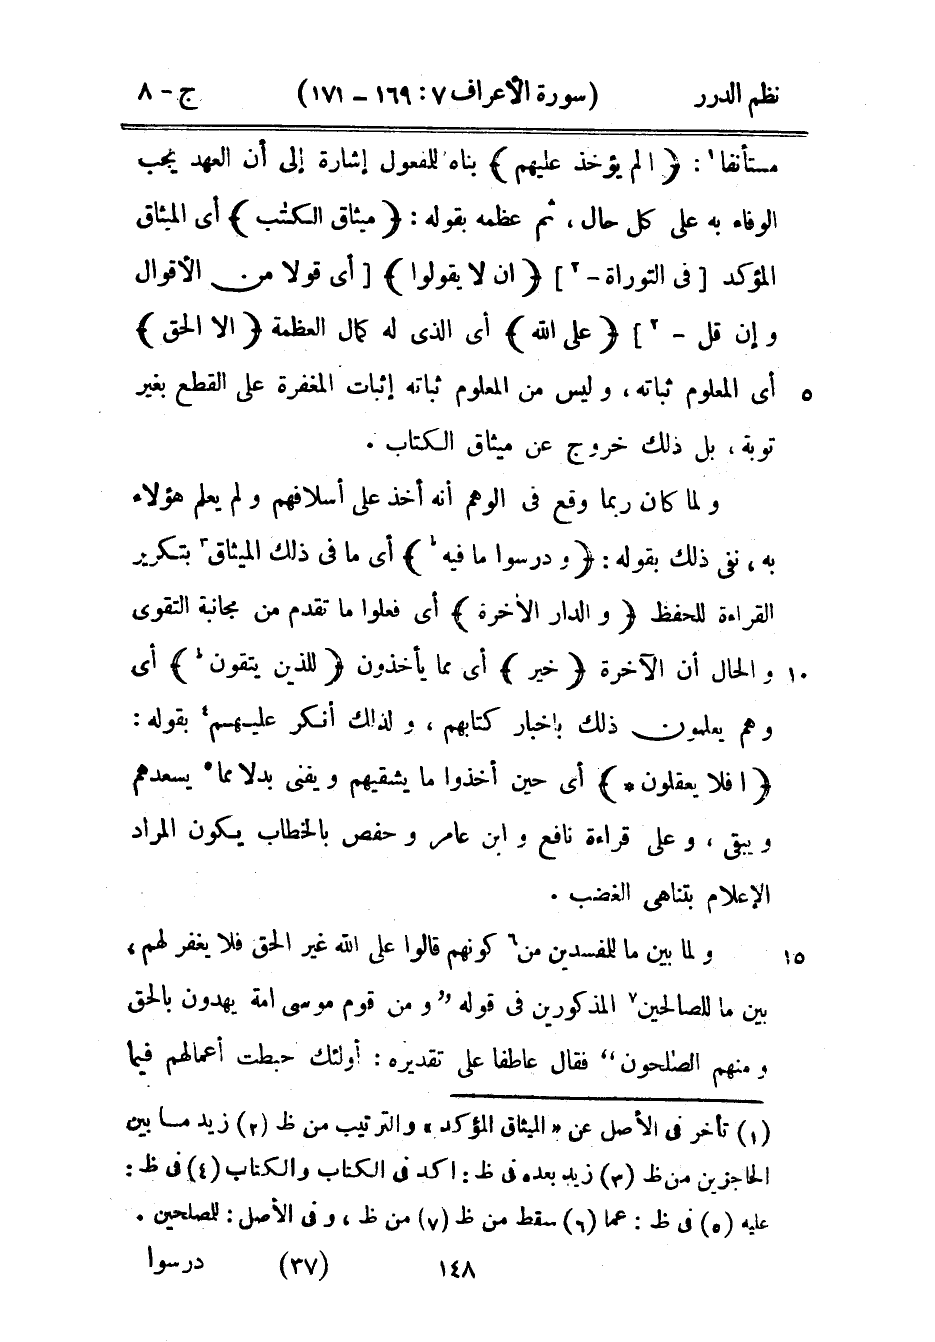 نظم الدرر (سورة الأعراف ٧: ١٦٩ – ١٧١) ج – ٨
مستأنفا١: ﴿ الم يؤخذ عليهم ﴾ بناه للفعول إشارة إلى أن العهد يجب
الوفاء به على كل حال، ثم عظمه بقوله: ﴿ ميثاق الكتٰب ﴾ أى الميثاق
المؤكد [ فى التوراة – ٢ ] ﴿ ان لا يقولوا ﴾ [ أى قولا من الأقوال
و إن قل – ٢ ] ﴿ على الله ﴾ أى الذى له كمال العظمة ﴿ الا الحق ﴾
٥ أى المعلوم ثباته، و ليس من المعلوم ثباته إثبات المغفرة على القطع بغير
توبة، بل ذلك خروج عن ميثاق الكتاب .
و لما كان ربما وقع فى الوهم أنه أخذ على أسلافهم و لم يعلم هؤلاء
به، نفى ذلك بقوله: ﴿ و درسوا ما فيه ط ﴾ أى ما فى ذلك الميثاق٣ بتكرير
القراءة للحفظ ﴿ و الدار الاٰخرة ﴾ أى فعلوا ما تقدم من مجانبة التقوى
١٠ و الحال أن الآخرة ﴿ خير ﴾ أى مما يأخذون ﴿ للذين يتقون ط ﴾ أى
و هم يعلمون ذلك باخبار كتابهم، و لذلك أنكر عليهم٤ بقوله:
﴿ ا فلا يعقلون * ﴾ أى حين أخذوا ما يشقيهم و يفنى بدلا مما٥ يسعدهم
و يبقى، و على قراءة نافع و ابن عامر و حفص بالخطاب يكون المراد
الإعلام بتناهى الغضب .
١٥ و لما بين ما للفسدين من٦ كونهم قالوا على الله غير الحق فلا يغفر لهم،
بين ما للصالحين٧ المذكورين فى قوله ”و من قوم موسى امة يهدون بالحق
و منهم الصٰلحون“ فقال عاطفا على تقديره: أولئك حبطت أعمالهم فيما
(١) تأخر فى الأصل عن « الميثاق المؤكد » والترتيب من ظ (٢) زيد ما بين
الحاجزين من ظ (٣) زيد بعده فى ظ: اكد فى الكتاب والكتاب (٤) فى ظ:
عليه (٥) فى ظ: عما (٦) سقط من ظ (٧) من ظ، و فى الأصل: للصلحين .
١٤٨ (٣٧) درسوا